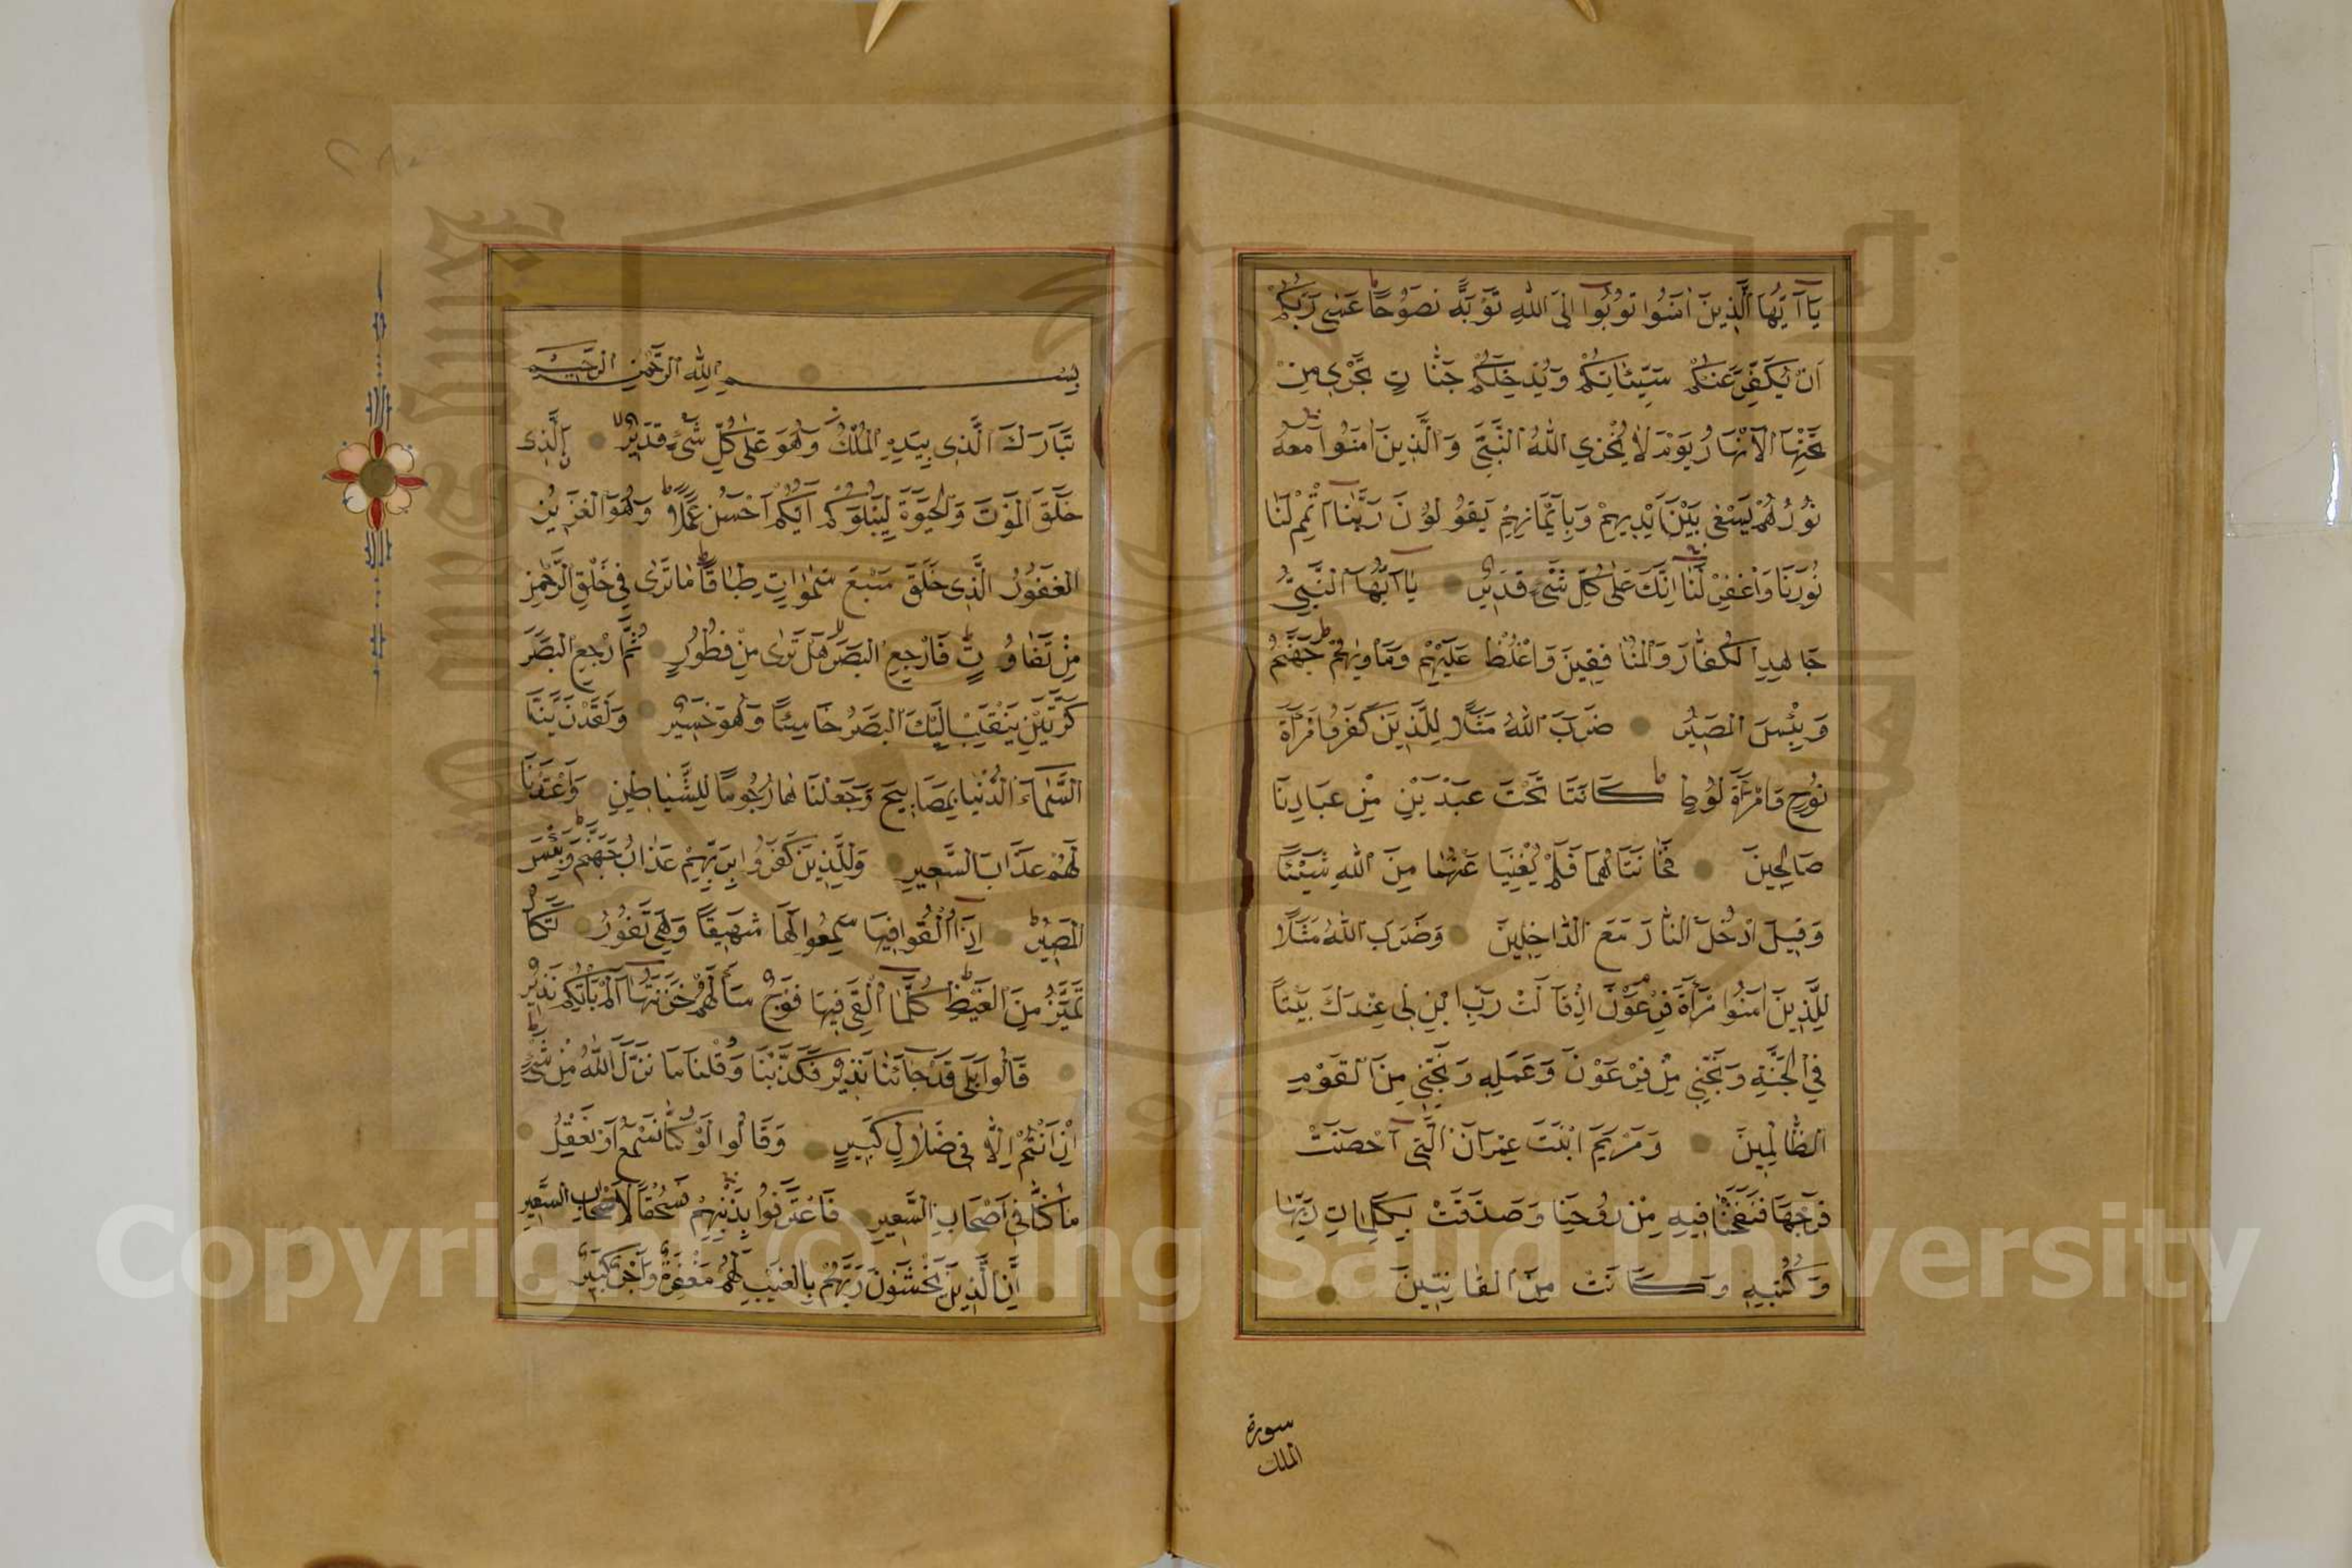 يَا أَيُّهَا الَّذِينَ اٰمَنُوا تُوبُوا اِلَى اللّٰهِ تَوْبَةً نَصُوحًا عَسٰى رَبُّكُمْ
اَنْ يُكَفِّرَ عَنْكُمْ سَيِّئَاتِكُمْ وَيُدْخِلَكُمْ جَنَّاتٍ تَجْرِى مِنْ
تَحْتِهَا الْاَنْهَارُ يَوْمَ لَا يُخْزِي اللّٰهُ النَّبِيَّ وَالَّذِينَ اٰمَنُوا مَعَهُ
نُورُهُمْ يَسْعٰى بَيْنَ اَيْدِيهِمْ وَبِاَيْمَانِهِمْ يَقُولُونَ رَبَّنَا اَتْمِمْ لَنَا
نُورَنَا وَاغْفِرْ لَنَا اِنَّكَ عَلٰى كُلِّ شَىْءٍ قَدِيرٌ يَا اَيُّهَا النَّبِيُّ
جَاهِدِ الْكُفَّارَ وَالْمُنَافِقِينَ وَاغْلُظْ عَلَيْهِمْ وَمَأْوٰيهُمْ جَهَنَّمُ
وَبِئْسَ الْمَصِيرُ ضَرَبَ اللّٰهُ مَثَلًا لِلَّذِينَ كَفَرُوا امْرَاَةَ
نُوحٍ وَامْرَاَةَ لُوطٍ كَانَتَا تَحْتَ عَبْدَيْنِ مِنْ عِبَادِنَا
صَالِحِينَ فَخَانَتَاهُمَا فَلَمْ يُغْنِيَا عَنْهُمَا مِنَ اللّٰهِ شَيْئًا
وَقِيلَ ادْخُلَا النَّارَ مَعَ الدَّاخِلِينَ وَضَرَبَ اللّٰهُ مَثَلًا
لِلَّذِينَ اٰمَنُوا امْرَاَةَ فِرْعَوْنَ اِذْ قَالَتْ رَبِّ ابْنِ لِى عِنْدَكَ بَيْتًا
فِي الْجَنَّةِ وَنَجِّنِي مِنْ فِرْعَوْنَ وَعَمَلِهِ وَنَجِّنِي مِنَ الْقَوْمِ
الظَّالِمِينَ وَمَرْيَمَ ابْنَتَ عِمْرَانَ الَّتِى اَحْصَنَتْ
فَرْجَهَا فَنَفَخْنَا فِيهِ مِنْ رُوحِنَا وَصَدَّقَتْ بِكَلِمَاتِ رَبِّهَا
وَكُتُبِهِ وَكَانَتْ مِنَ الْقَانِتِينَ
سورة
الملك
بِسْمِ اللّٰهِ الرَّحْمٰنِ الرَّحِيمِ
تَبَارَكَ الَّذِى بِيَدِهِ الْمُلْكُ وَهُوَ عَلٰى كُلِّ شَىْءٍ قَدِيرٌ اَلَّذِى
خَلَقَ الْمَوْتَ وَالْحَيٰوةَ لِيَبْلُوَكُمْ اَيُّكُمْ اَحْسَنُ عَمَلًا وَهُوَ الْعَزِيزُ
الْغَفُورُ الَّذِى خَلَقَ سَبْعَ سَمٰوَاتٍ طِبَاقًا مَا تَرٰى فِى خَلْقِ الرَّحْمٰنِ
مِنْ تَفَاوُتٍ فَارْجِعِ الْبَصَرَ هَلْ تَرٰى مِنْ فُطُورٍ ثُمَّ ارْجِعِ الْبَصَرَ
كَرَّتَيْنِ يَنْقَلِبْ اِلَيْكَ الْبَصَرُ خَاسِئًا وَهُوَ حَسِيرٌ وَلَقَدْ زَيَّنَّا
السَّمَاءَ الدُّنْيَا بِمَصَابِيحَ وَجَعَلْنَاهَا رُجُومًا لِلشَّيَاطِينِ وَاَعْتَدْنَا
لَهُمْ عَذَابَ السَّعِيرِ وَلِلَّذِينَ كَفَرُوا بِرَبِّهِمْ عَذَابُ جَهَنَّمَ وَبِئْسَ
الْمَصِيرُ اِذَا اُلْقُوا فِيهَا سَمِعُوا لَهَا شَهِيقًا وَهِىَ تَفُورُ تَكَادُ
تَمَيَّزُ مِنَ الْغَيْظِ كُلَّمَا اُلْقِىَ فِيهَا فَوْجٌ سَاَلَهُمْ خَزَنَتُهَا اَلَمْ يَأْتِكُمْ نَذِيرٌ
قَالُوا بَلٰى قَدْ جَائَنَا نَذِيرٌ فَكَذَّبْنَا وَقُلْنَا مَا نَزَّلَ اللّٰهُ مِنْ شَىْءٍ
اِنْ اَنْتُمْ اِلَّا فِى ضَلَالٍ كَبِيرٍ وَقَالُوا لَوْ كُنَّا نَسْمَعُ اَوْ نَعْقِلُ
مَا كُنَّا فِى اَصْحَابِ السَّعِيرِ فَاعْتَرَفُوا بِذَنْبِهِمْ فَسُحْقًا لِاَصْحَابِ السَّعِيرِ
اِنَّ الَّذِينَ يَخْشَوْنَ رَبَّهُمْ بِالْغَيْبِ لَهُمْ مَغْفِرَةٌ وَاَجْرٌ كَبِيرٌ
Copyright © King Saud University
1957